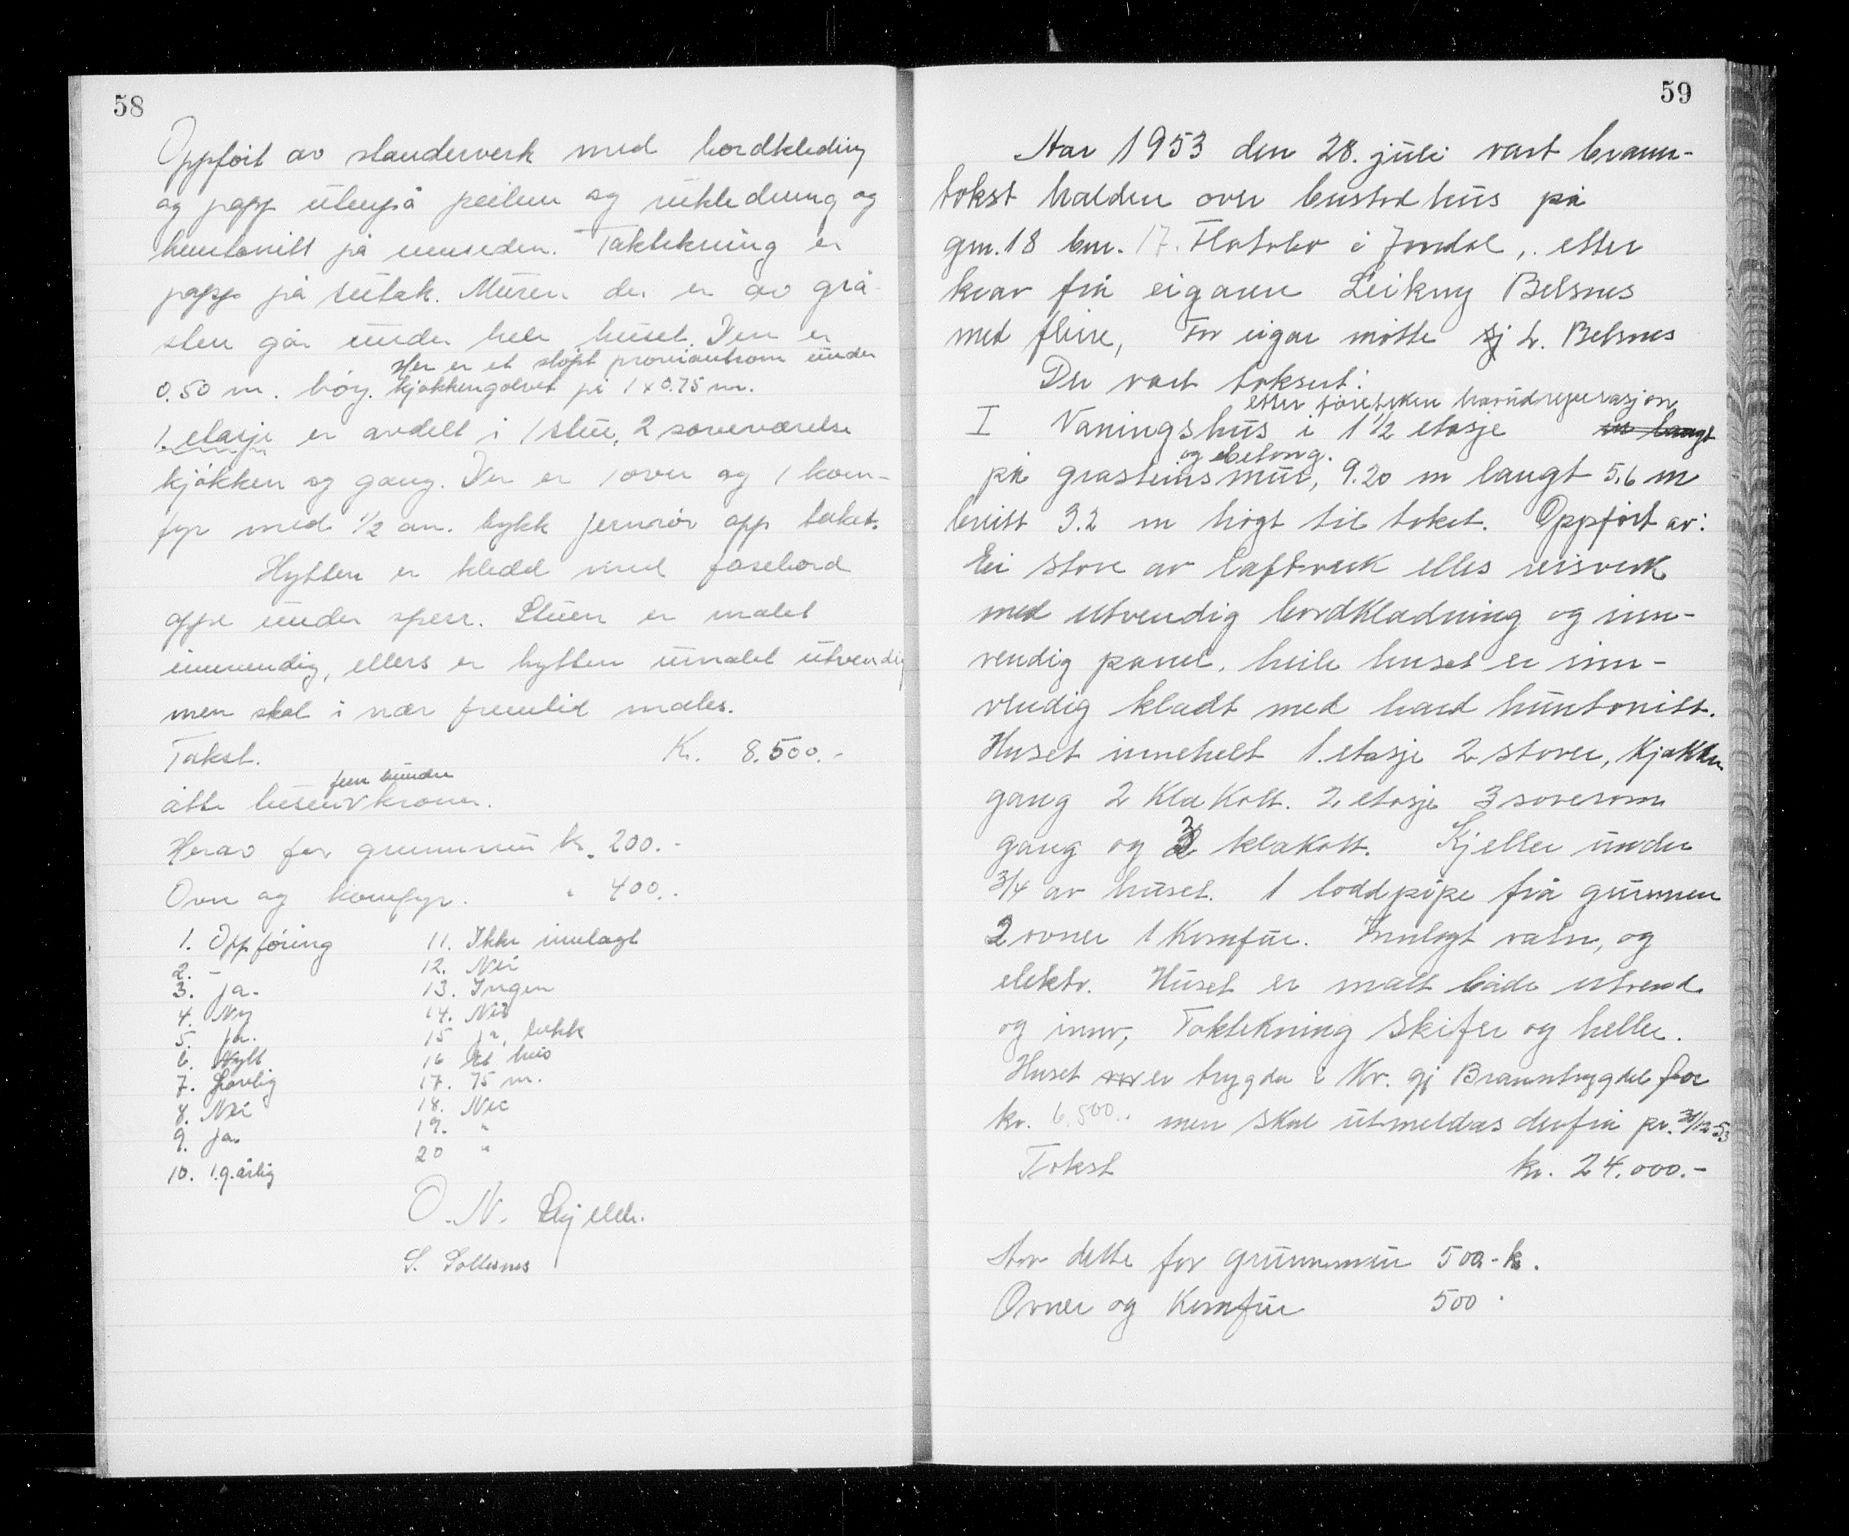 58
Oppført av standerverk med bordkleding
og papp utenpå peilen og rukledning og
huntonitt på innsiden. Taktekning er
papp på sutak. Muren der er av grå-
sten går under hele huset. Den er
Her er et støpt proviantrom under
0.50 m. høy. kjøkkengolvet på 1 x 0.75 m.
1. etasje er avdelt i 1 stue, 2 soveværelse
kjøkken og gang. Der er 1 ovn og 1 kom-
fyr med 1/2 cm. tykk jernrør opp taket.
Hytten er kledd med fasebord
oppe under sperr. Stuen er malet
innvendig, ellers er hytten umalet utvendig
men skal i nær fremtid males.
Takst. Kr. 8.500.-
fem hundre
åtte tusen v kroner.
Herav for grunnmur kr. 200.-
Ovn og komfyr. " 400.-
1. Oppføring 11. Ikke innlagt
2. - 12. Nei
3. ja. 13. Ingen
4. Ny 14. Nei
5. ja. 15 ja, takk
6. Nytt 16 et hus
7. Lovlig 17. 75 m.
8. Nei 18. Nei
9. ja. 19. "
10. 1.g. årlig 20 "
O. N. Skjelde.
S. Sollesnes
59
Aar 1953 den 28. juli vart brann-
takst halden over bustadhus på
gnr. 18 bnr. 17. Flatabø i Jondal, etter
krav frå eigaren Leikny Belsnes
med fleire, For eigar møtte sj L. Belsnes
Der vart taksert:
etter foreteken hovudreparasjon
I Vaningshus i 1 1/2 etasje m langt
og betong.
på grasteinsmur, 9.20 m langt 5.6 m
breitt 3.2 m høgt til taket. Oppført av:
Ei stove av laftverk elles reisverk
med utvendig bordkladning og inn-
vendig panel, heile huset er inn-
vendig kladt med hard huntonitt.
Huset inneheld 1. etasje 2 stover, kjøkken
gang 2 klakott. 2 etasje 3 soverom
gang og 3 klakott. Kjeller under
3/4 av huset. 1 loddpipe frå grunnen
2 ovner 1 Komfur. Innlagt vatn, og
elektr. Huset er malt både utvend.
og innv, Taktekning skifer og heller.
Huset var er trygda i Nr. gj Branntrygdel for
kr. 6.500.- men skal utmeldas derfrå pr. 31/12-53
Takst kr. 24.000.-
Av dette for grunnmur 500-k.
Ovner og Komfur 500 -